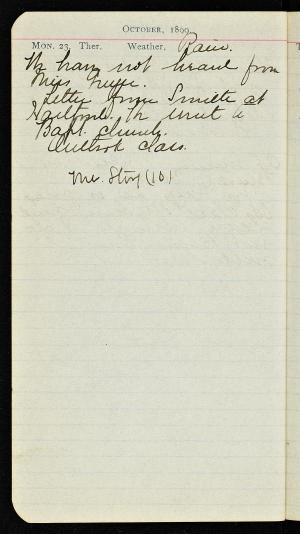 OCTOBER, 1899
MON. 23. Ther. Weather, Rain.
We have not heard from
Miss
Letter from Smith at
Hartford. We went to
Bapt. church.
Outlook Class.
Mr. Story (10)